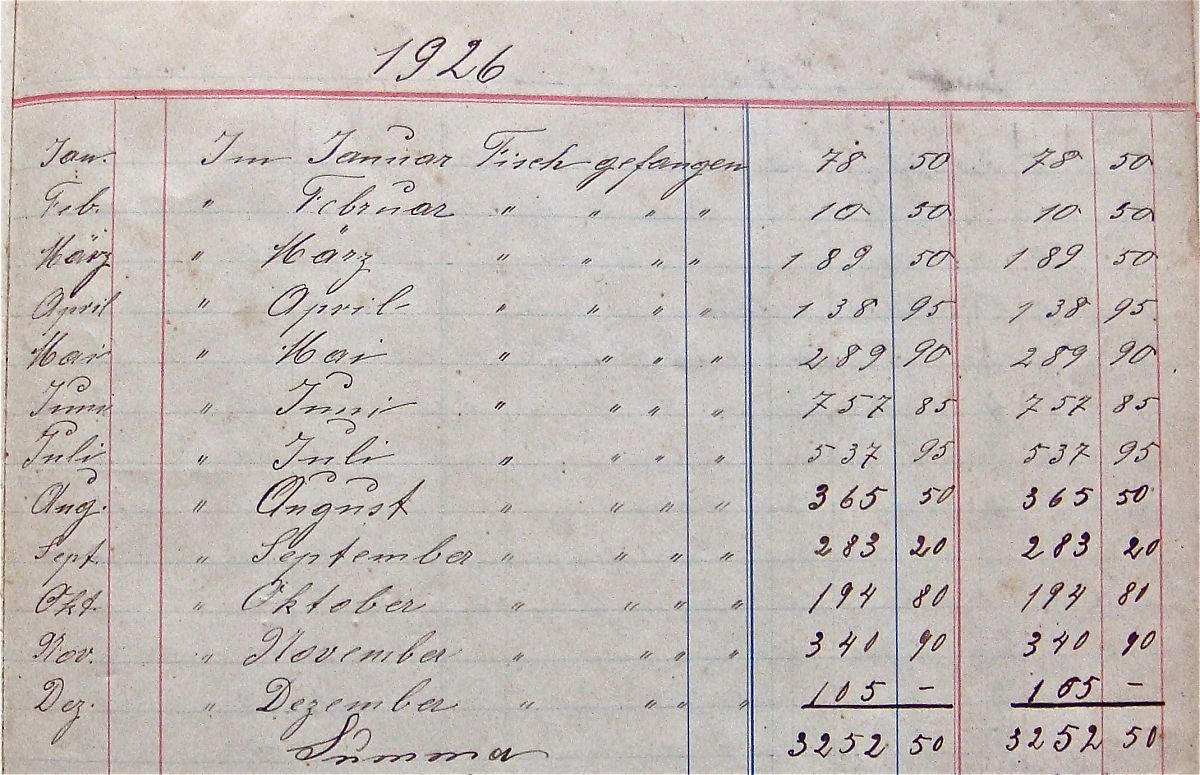 1926
Jan. Im Januar Fisch gefangen 78 50 78 50
Feb. " Februar " " " " 10 50 10 50
März " März " " " " 189 50 189 50
April " April " " " " 138 95 138 95
Mai " Mai " " " " 289 90 289 90
Juni " Juni " " " " 757 85 757 85
Juli " Juli " " " " 537 95 537 95
Aug. " August " " " " 365 50 365 50
Sept. " September " " " " 283 20 283 20
Okt. " Oktober " " " " 194 80 194 80
Nov. " November " " " " 340 90 340 90
Dez. " Dezember " " " " 105 – 105 –
Summa 3252 50 3252 50